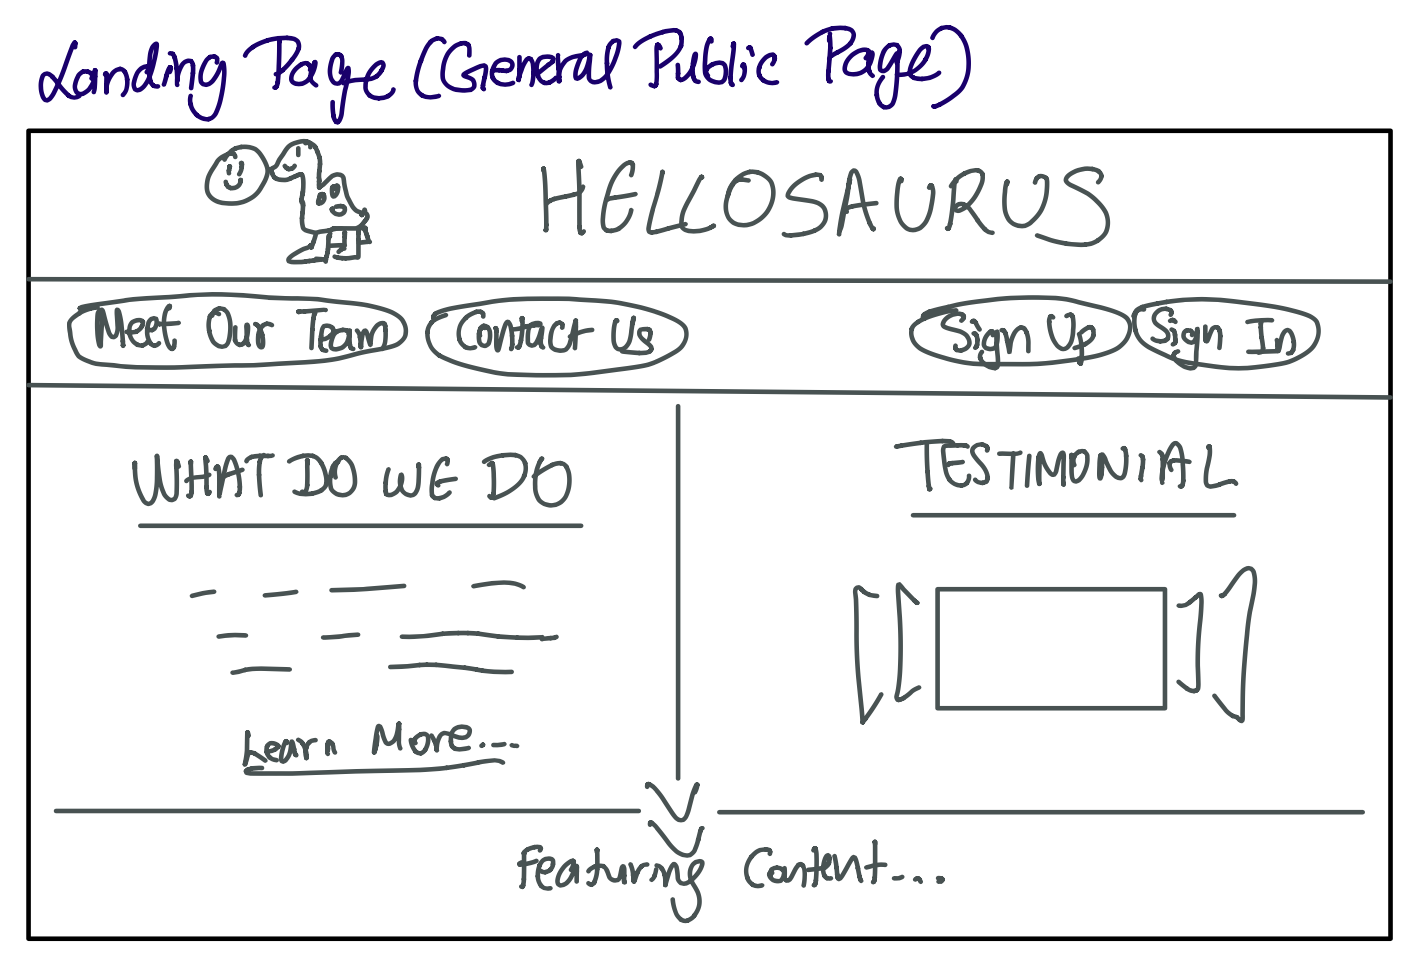 Landing Page (General Public Page)
HELLOSAURUS
Meet Our Team Contact Us Sign Up Sign In
WHAT DO WE DO
TESTIMONIAL
Learn More...
Featuring Content...